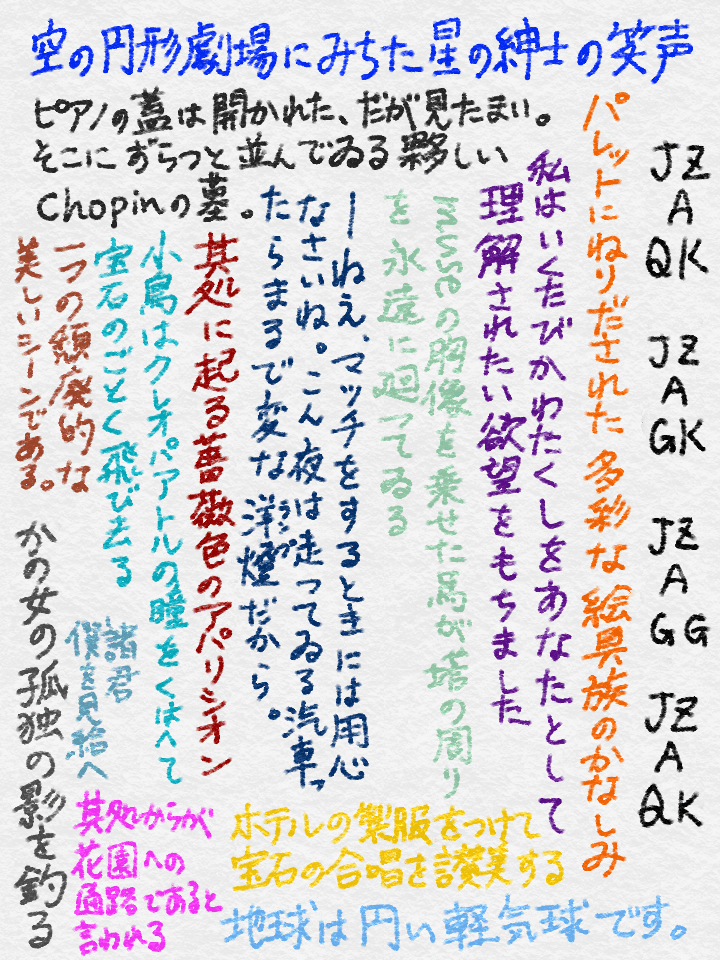 空の円形劇場にみちた星の紳士の笑声
ピアノの蓋は開かれた、だが見たまい。
そこにずらつと並んでゐる夥しい
Chopinの墓。
パレットにねりだされた多彩な絵具族のかなしみ
JZ
A
QK
JZ
A
GK
JZ
A
GG
JZ
A
QK
私はいくたびかわたくしをあなたとして
理解されたい欲望をもちました
museの胸像を乗せた馬が塔の周り
を永遠に廻つてゐる
―ねえ、マッチをするときには用心
なさいね。こん夜は走ってゐる汽車っ
たらまるで変な洋燈だから。
ランプ
其処に起る薔薇色のアパリシオン
小鳥はクレオパアトルの瞳をくはへて
宝石のごとく飛び去る
一つの頽廃的な
美しいシーンである。
諸君
僕を見給へ
かの女の孤独の影を釣る
其処からが
花園への
通路であると
言われる
ホテルの製服をつけて
宝石の合唱を讃美する
地球は円い軽気球です。